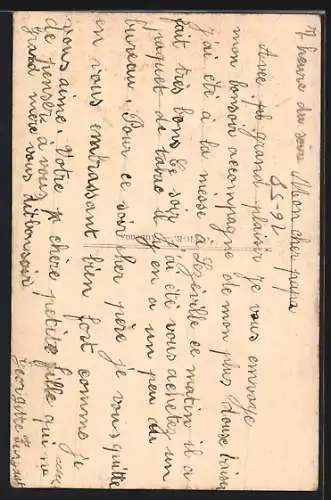 7 heure du soir Mon cher papa
Avec grand plaisir je vous envoye
mon bonsoir accompagne de mon plus doux baiser
j'ai été à la messe à ce matin il a
fait très bons Ce soir j'ai été vous achetez un
paquet de tabac il y en a un peu au
bureau. Pour ce soir cher père je vous quitte
en vous embrassant bien fort comme je
vous aime. Votre chère petite fille qui ne
de penser à vous
Grand mère vous dit bonsoir
Georgette